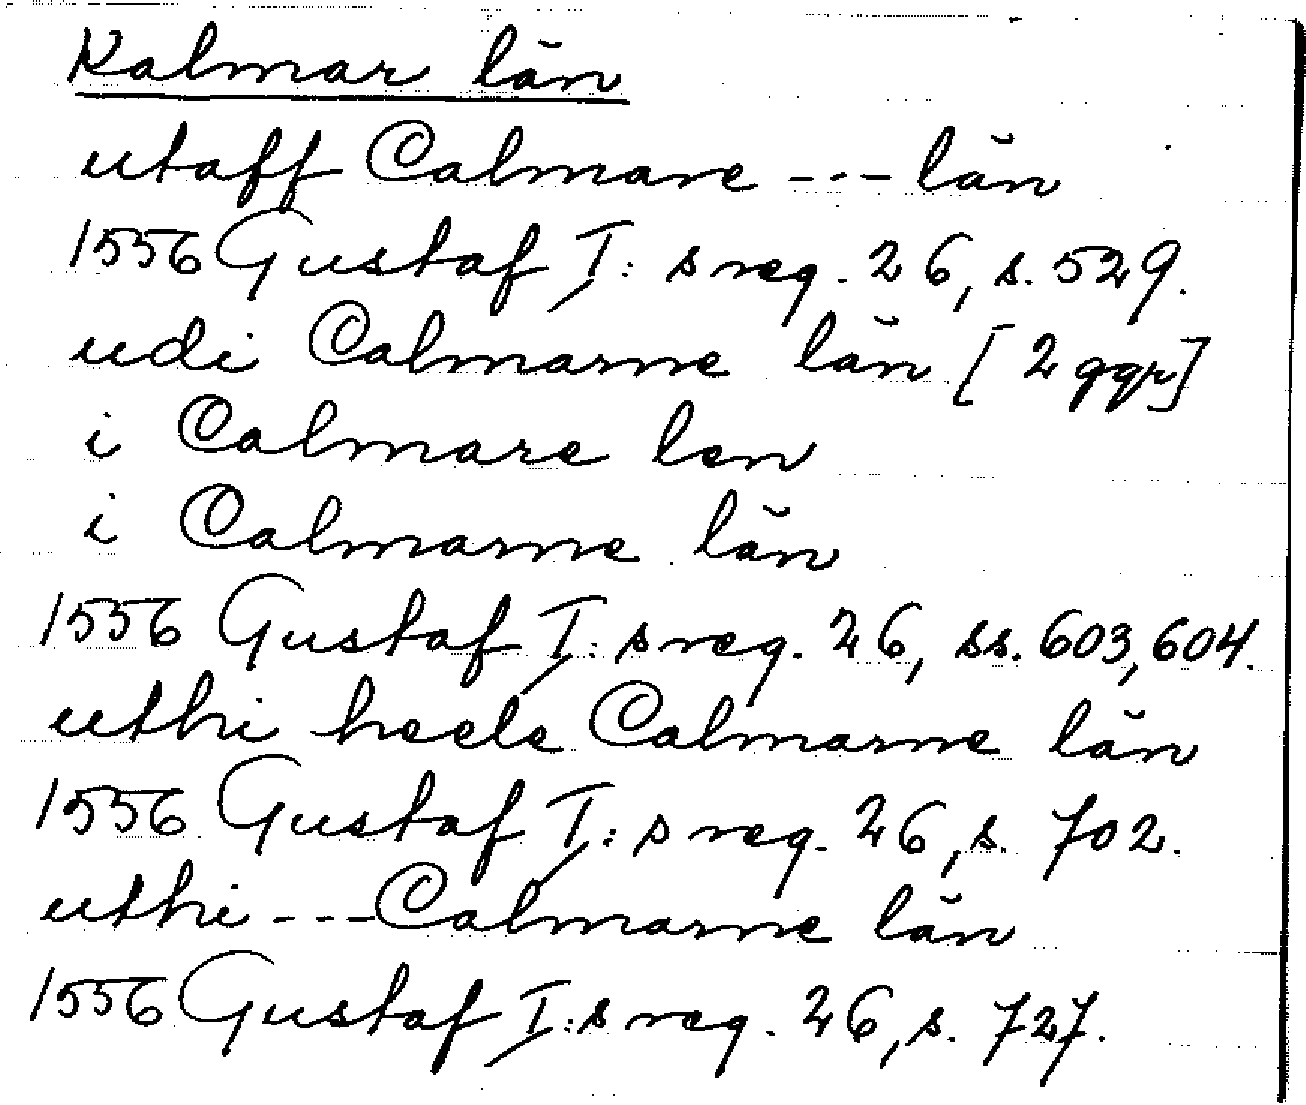 Kalmar län
utaff Calmare --- län
1556 Gustaf I:s reg. 26, s. 529.
udi Calmarne län [2 ggr]
i Calmare len
i Calmarne län
1556 Gustaf I:s reg. 26, ss. 603, 604.
uthi heele Calmarne län
1556 Gustaf I:s reg. 26, s. 702.
uthi --- Calmarne län
1556 Gustaf I:s reg. 26, s. 727.